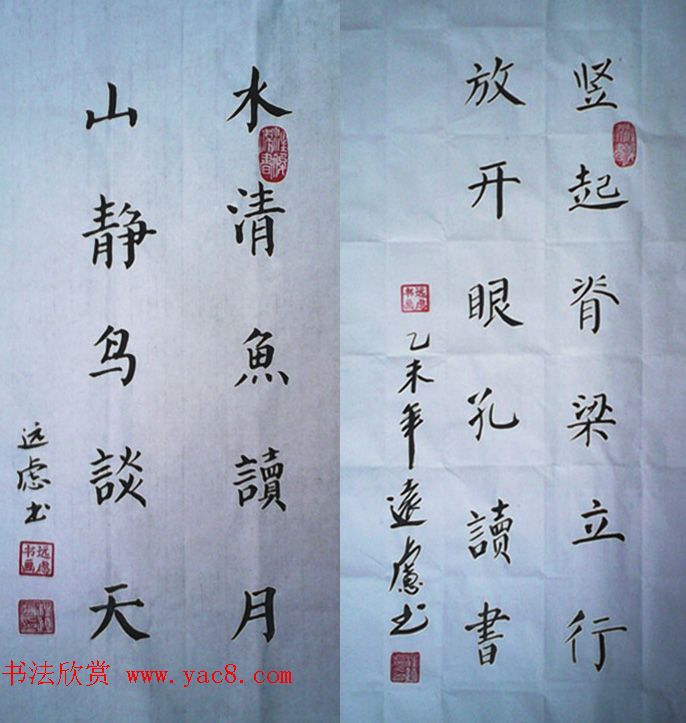 水清魚讀月
山静鸟談天
远虑书
远虑书画
竖起脊梁立行
放开眼孔讀書
乙未年遠慮书
远虑书画
书法欣赏 www.yac8.com